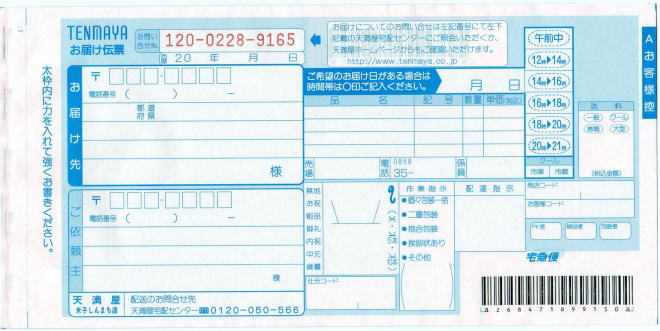 TENMAYA
お届け伝票
お問い合せNo.
120-0228-9165
20　年　月　日
お届けについてのお問い合せは左記番号にて左下
記載の天満屋宅配センターにご照会いただくか、
天満屋ホームページからもご確認いただけます。
http://www.tenmaya.co.jp
A お客様控
太枠内に力を入れて強くお書きください。
お届け先
〒
電話番号（　　）　－
都道
府県
様
ご希望のお届け日がある場合は
時間帯は〇印ご記入ください。
月　日
午前中
12時▶14時
14時▶16時
16時▶18時
18時▶20時
20時▶21時
クール
冷凍　冷蔵
品名　記号　数量　単価(税込)
送料
一般　クール
大型
(税込金額)
売場
電話
0859
35-
係員
ご依頼主
〒
電話番号（　　）　－
様
無地
お祝
粗品
御礼
内祝
中元
歳暮
仕分コード
作業指示
●個々包装一括
●二重包装
●抱合包装
●挨拶状あり
●その他
配達指示
発店コード
お客様コード
PK者
検品者
包装者
宅急便
天満屋
米子しんまち店
配送のお問合せ先
天満屋宅配センター 0120-050-566
a268471899150a